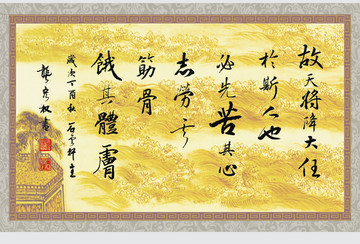 故天将降大任
於斯人也
必先苦其心
志勞其
筋骨
餓其體膚
歲次丁酉秋 石雲軒主